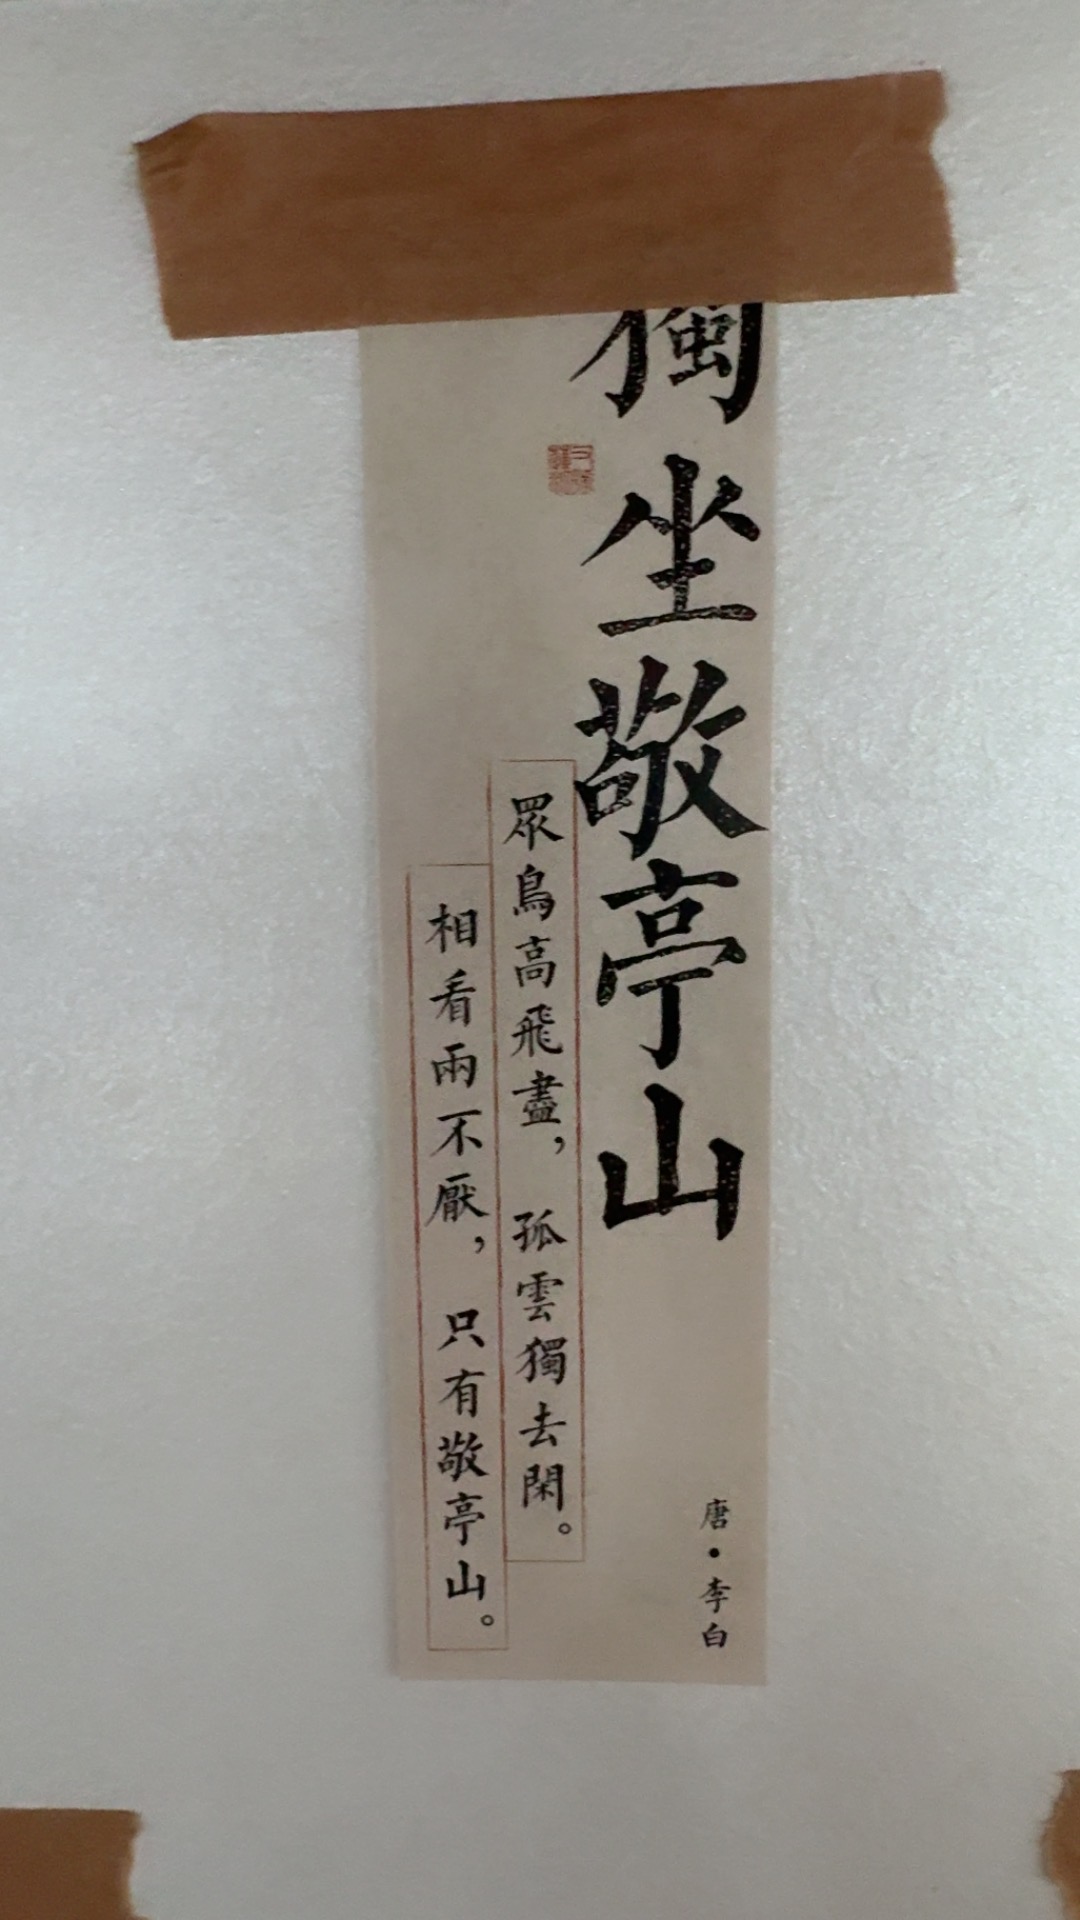 獨坐敬亭山
唐·李白
眾鳥高飛盡，孤雲獨去閑。
相看兩不厭，只有敬亭山。